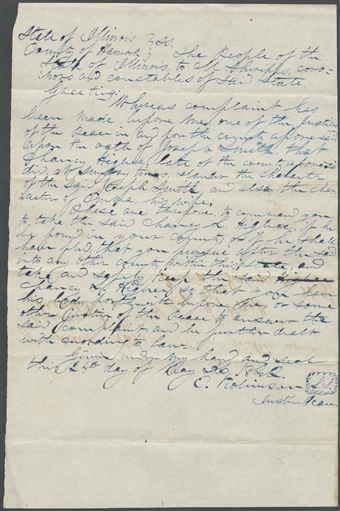 State of Illinois } ss.
County of Hancock } The People of the
State of Illinois, to all Sheriffs, coro-
ners and constables of said State
Greeting:
Whereas complaint has
been made before me, one of the Justices
of the Peace in and for the county aforesaid
upon the oath of Joseph Smith, that
Chancy Higbee, late of the county aforesaid
did, at sundry times, slander the character
of the said Joseph Smith, and also the char
acter of Emma his wife.
These are therefore to command you
to take the said Chancy L. Higbee, if he
be found in your county; or if he shall
have fled, that you pursue after the said
into any other county within this State, and
take and safely keep the said
Chancy L. Higbee so that you have
his body forthwith before me, or some
other Justice of the Peace to answer the
said complaint, and be further dealt
with according to law.
Given under my hand and seal
this 24th day of May 1842
E. Robinson L.S.
Just. Peace